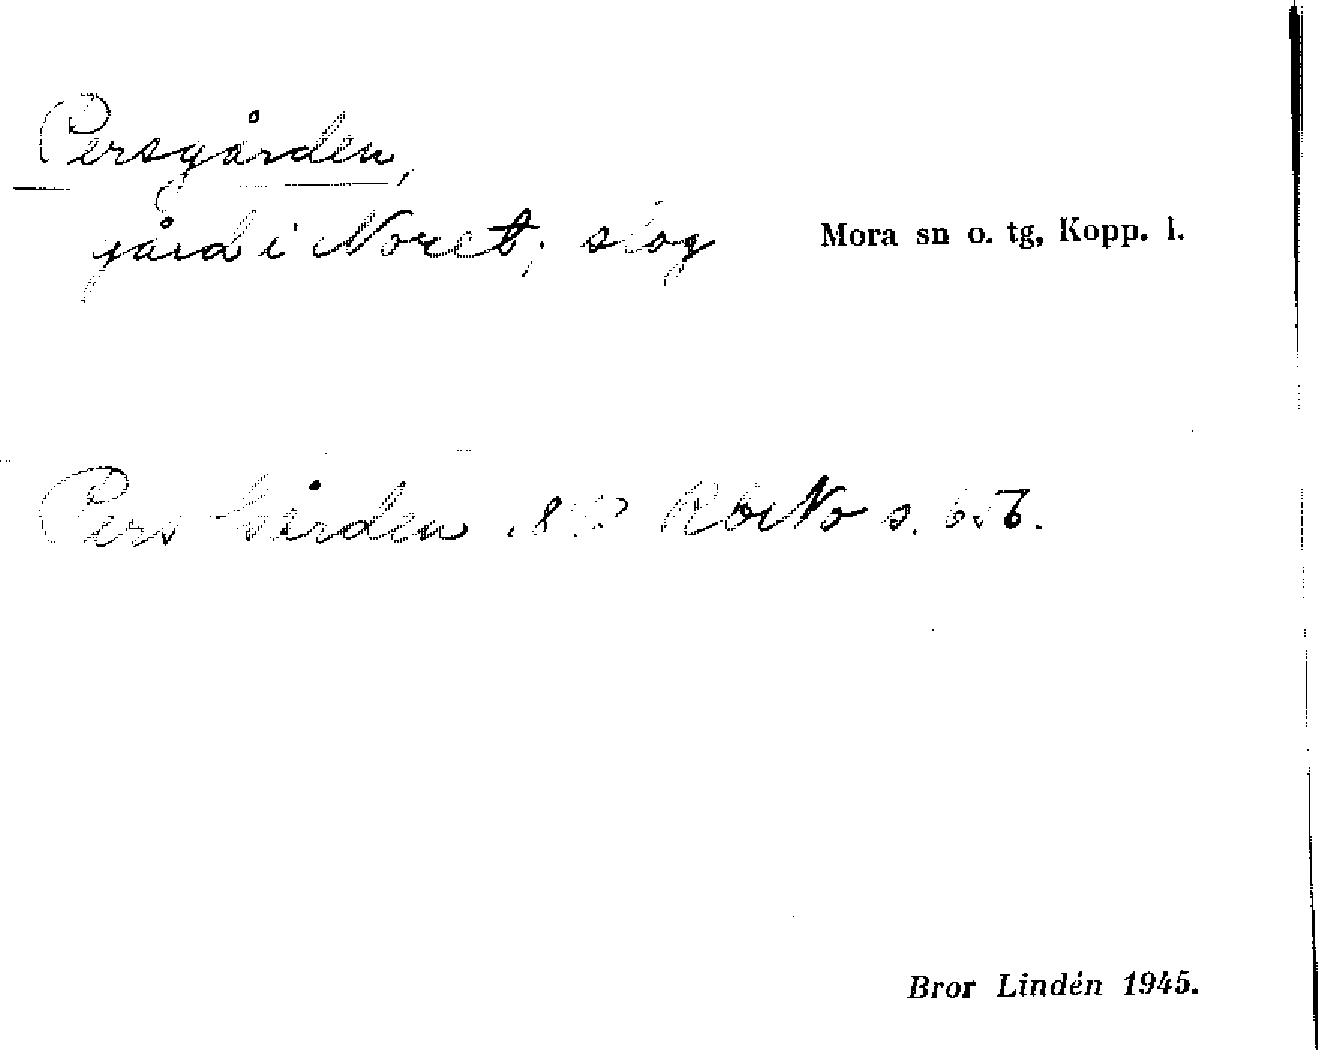 Persgården,
gård i Noret, skog Mora sn o. tg, Kopp. l.
Pers Gården s.
Bror Lindén 1945.